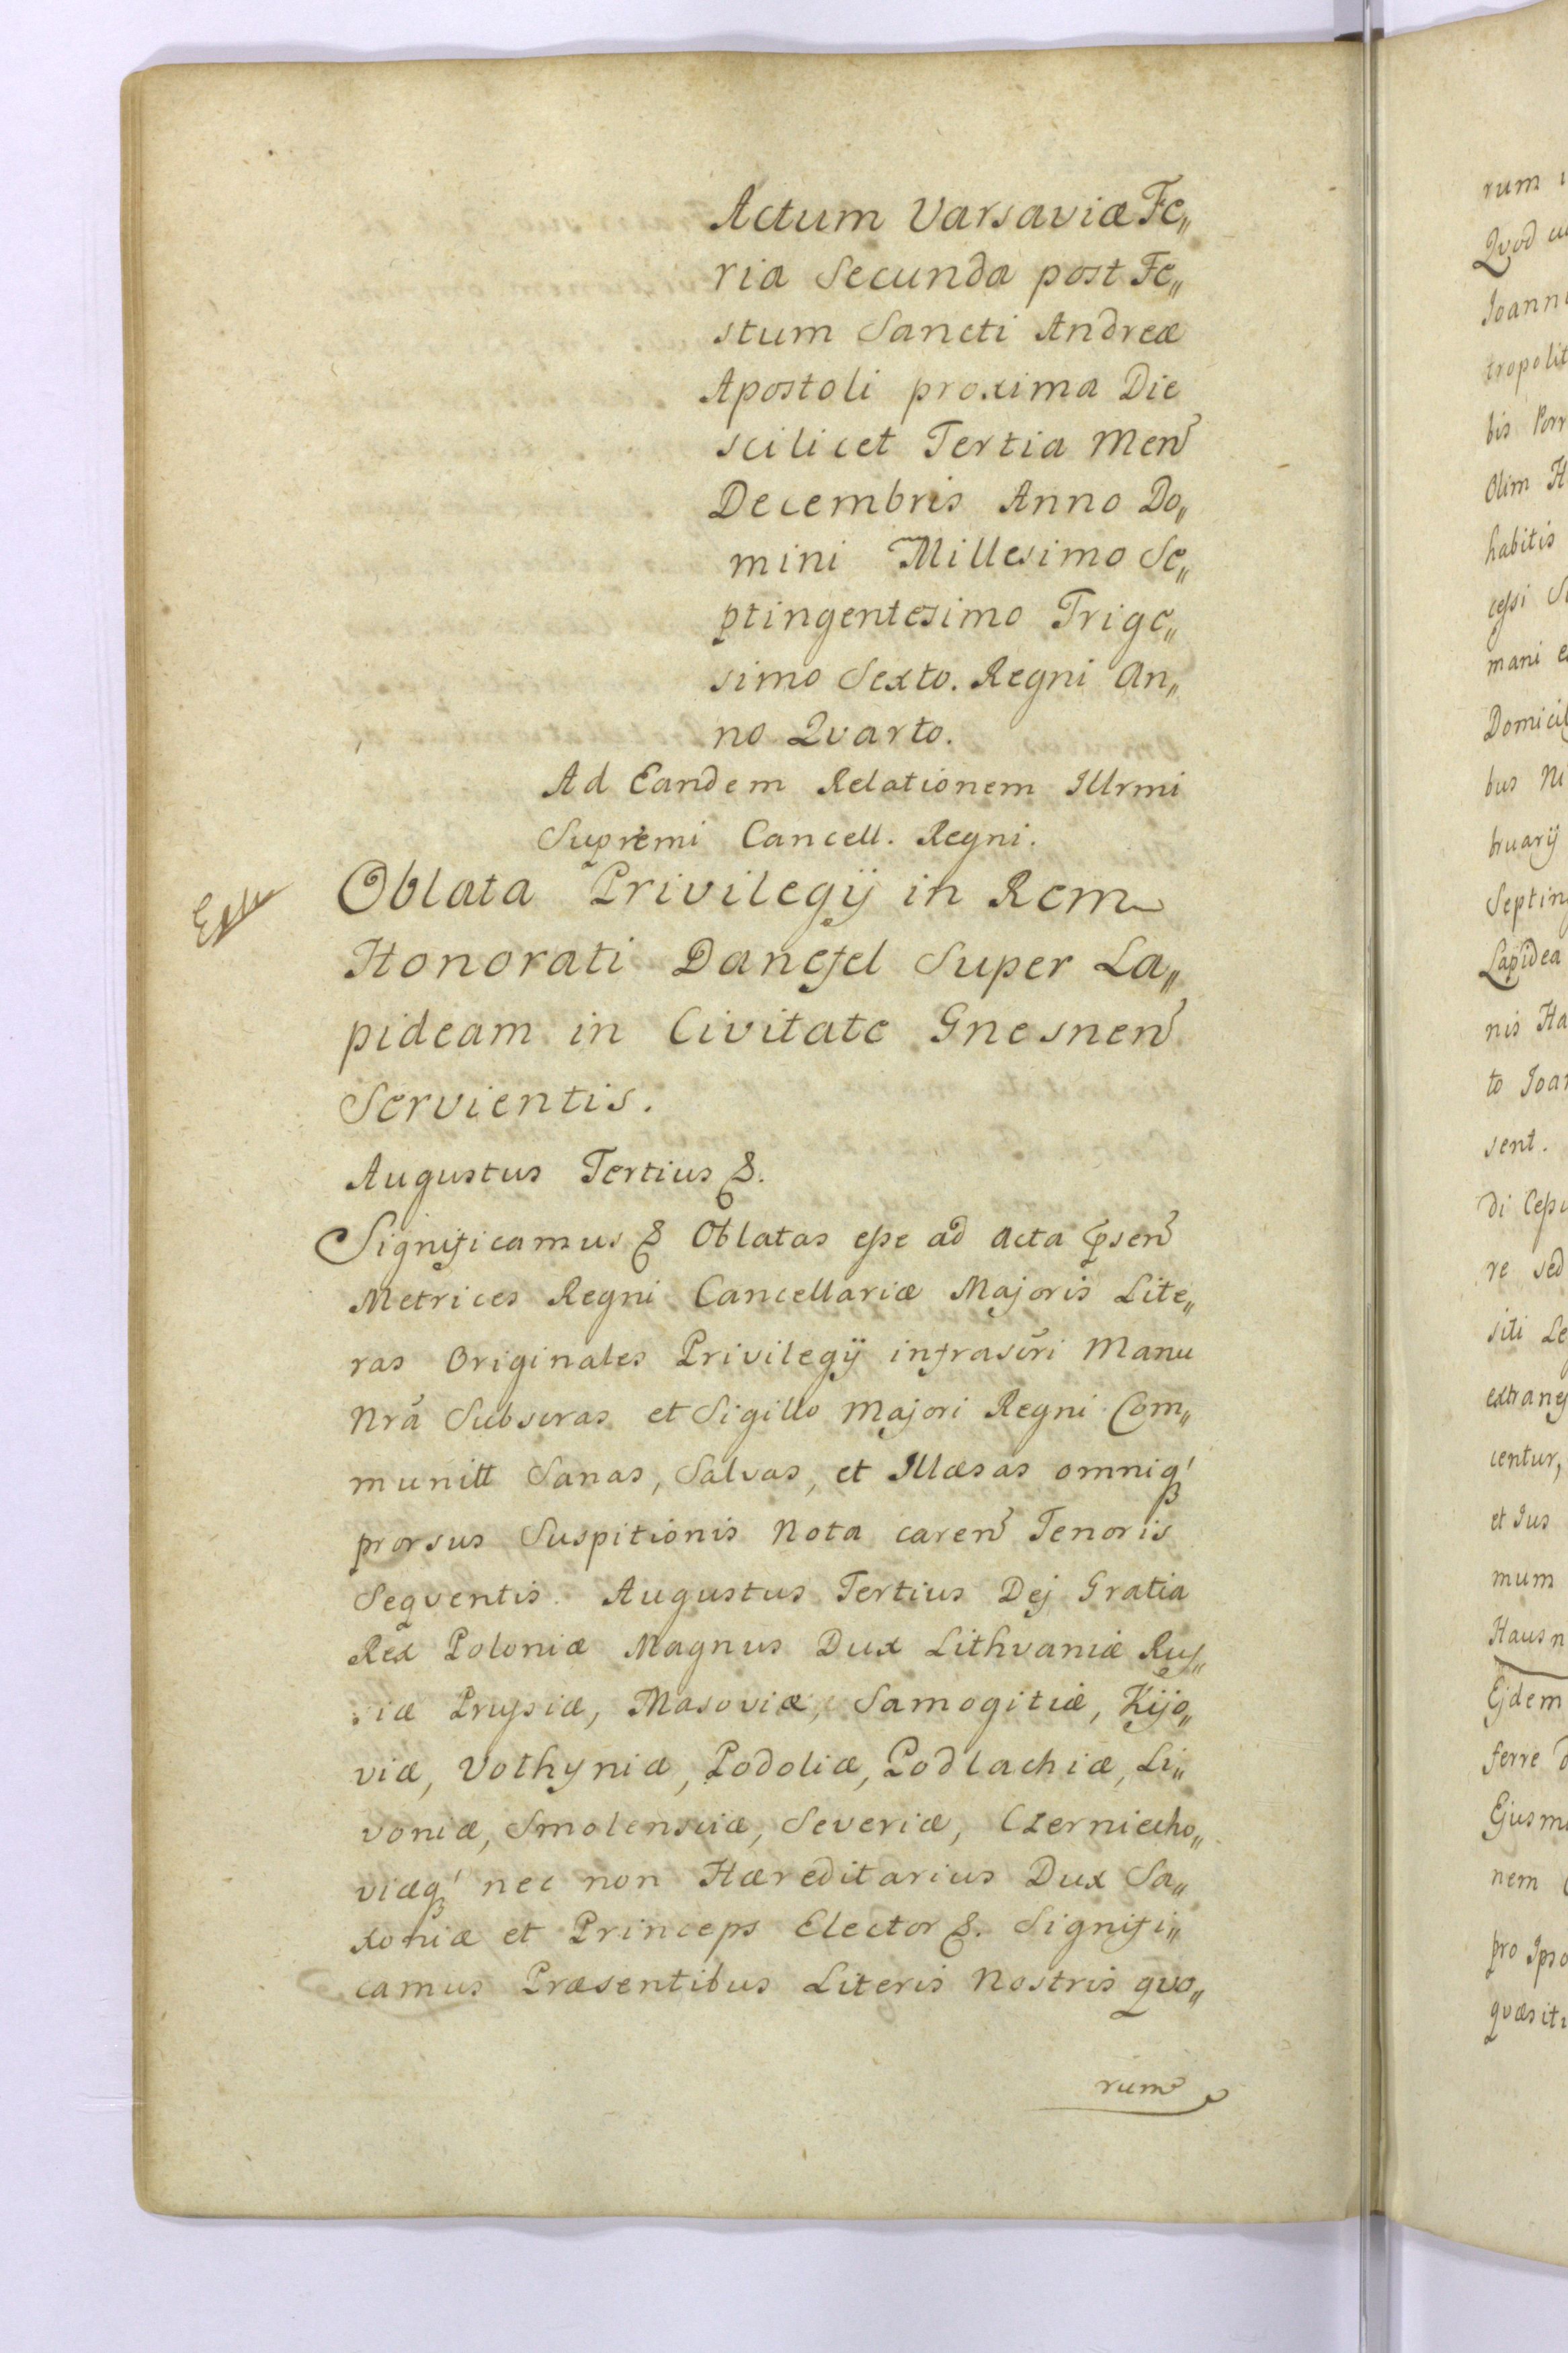 Actum Varsaviæ Fe„
ria Secunda post Fe„
stum Sancti Andreæ
Apostoli proxima Die
scilicet Tertia Men̄
Decembris Anno Do„
mini Millesimo Se„
ptingentesimo Trige„
simo Sexto. Regni An„
no Qvarto.
Ad Eandem Relationem Illrmi
Supremi Cancell. Regni.
Oblata Privilegij in Rem
Honorati Danefel Super La„
pideam in Civitate Gnesnen̄
Servientis.
Augustus Tertius &.
Significamus & Oblatas eſse ad Acta p̄sen̄
Metrices Regni Cancellariæ Majoris Lite„
ras Originales Privilegij infrascr̄i Manu
Nrā Subscras et Sigillo Majori Regni Com„
munitt Sanas, Salvas, et Illæsas omniq'
prorsus Suspitionis Nota caren̄ Tenoris
Seqventis. Augustus Tertius Dej Gratia
Rex Poloniæ Magnus Dux Lithvaniæ Ruſ„
siæ Pruſsiæ, Masoviæ, Samogitiæ, Kijo„
viæ, Volhyniæ, Podoliæ, Podlachiæ, Li„
voniæ, Smolensciæ, Severiæ, Czerniecho„
viæq' nec non Hæreditarius Dux Sa„
xoniæ et Princeps Elector &. Signifi„
camus Præsentibus Literis Nostris qvo„
rum
rum
Qvod
Joann
tropolit
bis
Olim
habitis
ceſsi
mani
Domicil
bus
bruarij
Septin
Lapidea
nis Ha
to Joa
sent.
di
re sed
siti
extran
centur,
et Jus
mum
Hausn
Ejdem
ferre
Ejusm
nem
pro Ipso
qvæsit